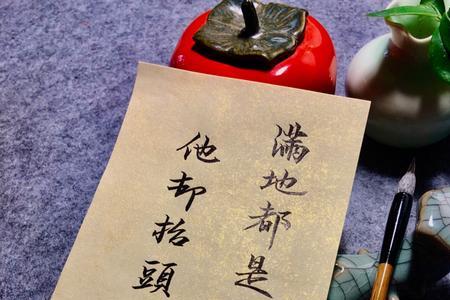 滿地都是
他却抬頭